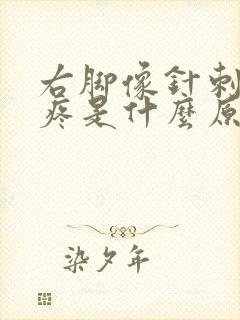 右脚像針刺
疼是什麼原
染夕年